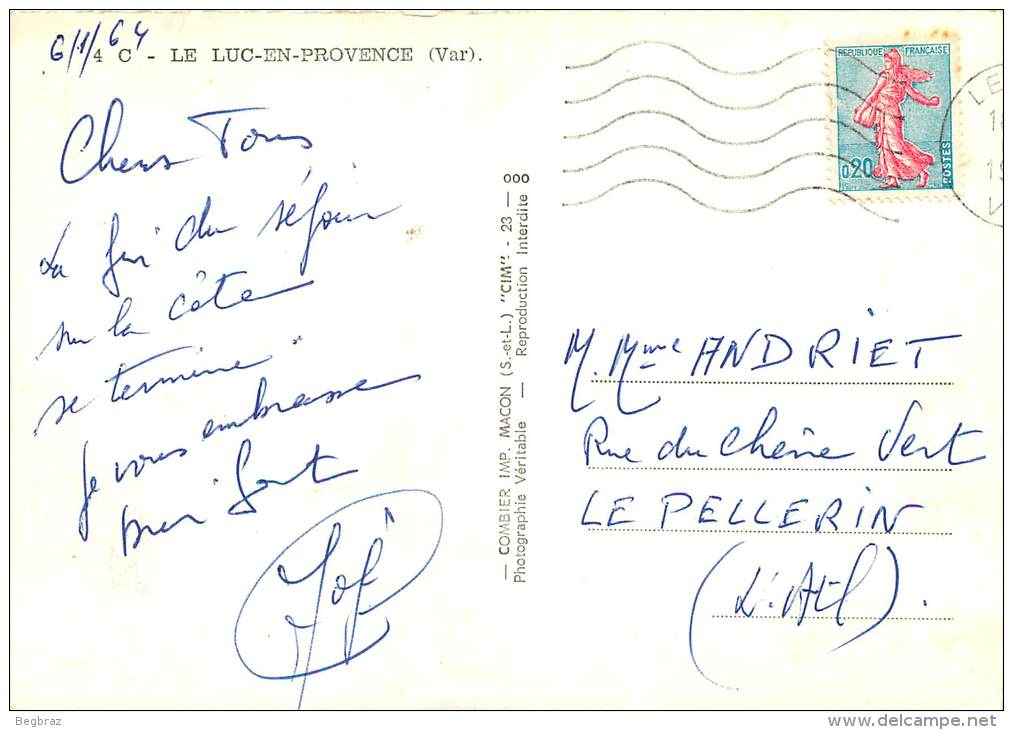 6/1/64
4 C - LE LUC-EN-PROVENCE (Var).
Chers Tous
La fin du séjour
sur la côte
se termine.
Je vous embrasse
bien fort
— COMBIER IMP. MACON (S.-et-L.) "CIM" - 23 — 000
Photographie Véritable — Reproduction Interdite
REPUBLIQUE FRANÇAISE
0,20
POSTES
LE
M. Mme ANDRIET
Rue du Chêne Vert
LE PELLERIN
(L. Atl).
Begbraz
delcampe.net